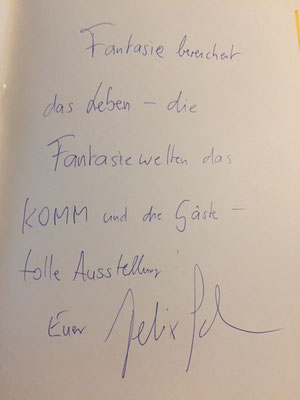 Fantasie bereichert
das Leben – die
Fantasiewelten das
KOMM und die Gäste –
tolle Ausstellung!
Euer Felix